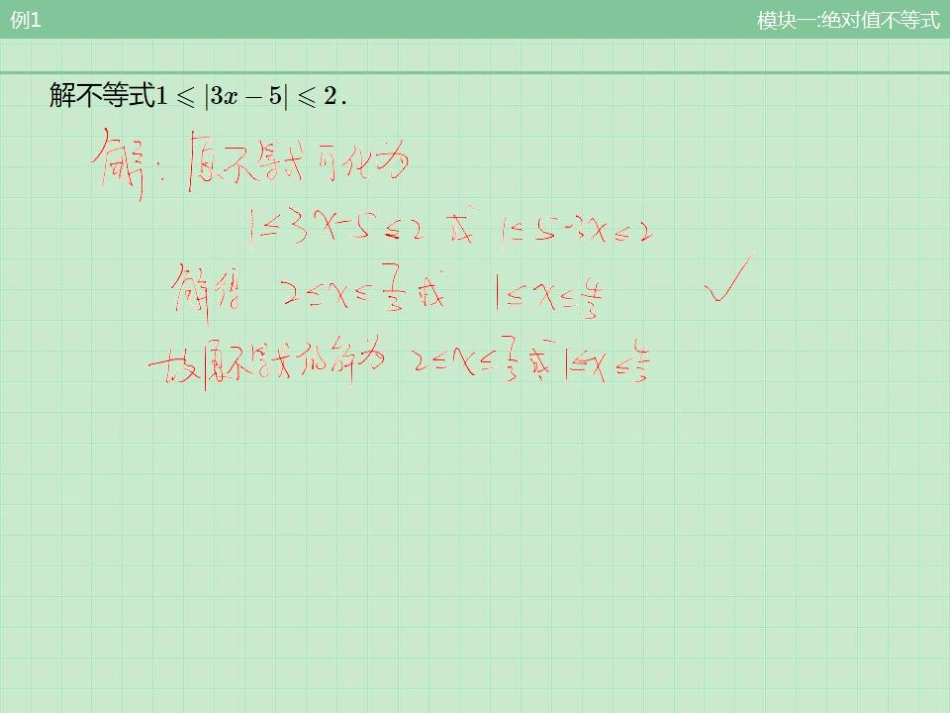 例1
模块一:绝对值不等式
解不等式1 ⩽ |3x − 5| ⩽ 2 .
解：原不等式可化为
1≤3x-5≤2 或 1≤5-3x≤2
解得 2≤x≤7/3 或 1≤x≤4/3
故原不等式的解为 2≤x≤7/3 或 1≤x≤4/3